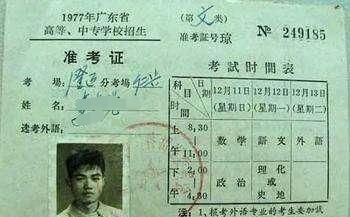 1977年广东省
高等、中专学校招生
(第文类)
准考证号琼 № 249185
准考证
考場 分考場
姓名
选考外语:
考試时間表
科目 时間
12月11日(星期日) 12月12日(星期一) 12月13日(星期二)
上午 8,30 11,00 数学 語文 外語
下午 2,00 4,30 政治 理化或史地
注:1、报考外语专业的考生要加試